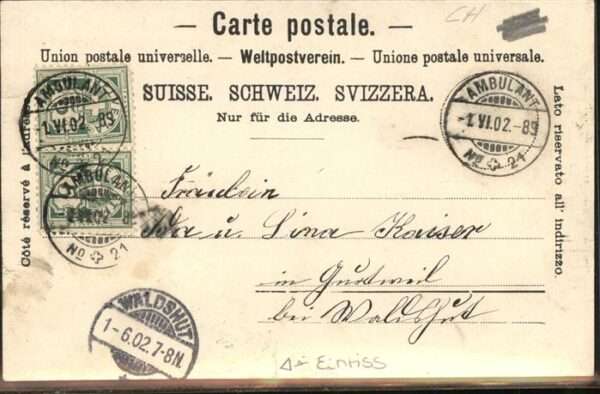 — Carte postale. —
CH
Union postale universelle. — Weltpostverein. — Unione postale universale.
SUISSE. SCHWEIZ. SVIZZERA.
Nur für die Adresse.
Côté réservé à l'adresse.
Lato riservato all' indirizzo.
AMBULANT
1.VI.02.-8
No 21
AMBULANT
VI.02
No 21
AMBULANT
-1.VI.02.-8
No 21
Fräulein
Ida u. Lina Kaiser
in Gurtweil
bei Waldshut
WALDSHUT
1-6.02.7-8N.
Einriss